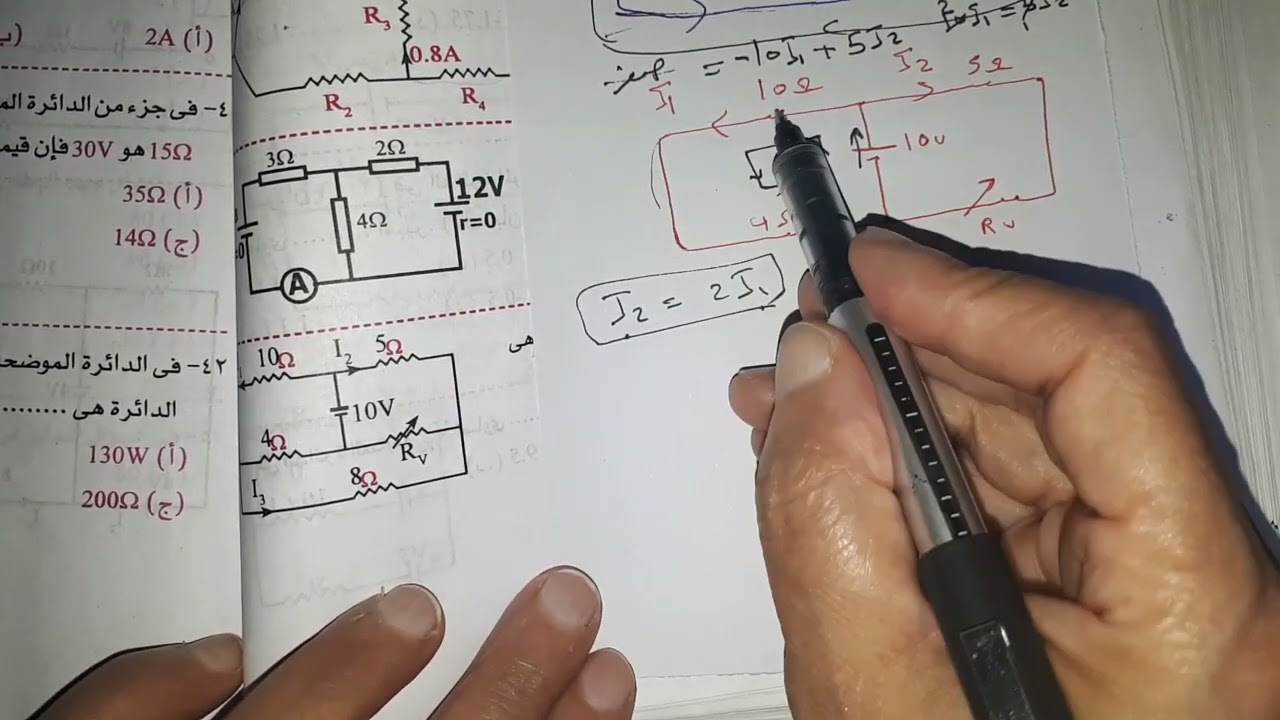 2A (أ)
(ب
٤- فى جزء من الدائرة
15Ω هو 30V فإن
35Ω (أ)
14Ω (ج)
٤٢- فى الدائرة
الدائرة هى ........
130W (أ)
200Ω (ج)
R₃
0.8A
R₂
R₄
3Ω
2Ω
12V
r=0
4Ω
A
هى
10Ω
I₂
5Ω
10V
4Ω
R_V
8Ω
I₃
= -10I₁ + 5I₂
I₁
10Ω
I₂
5Ω
10V
Rv
I₂ = 2I₁